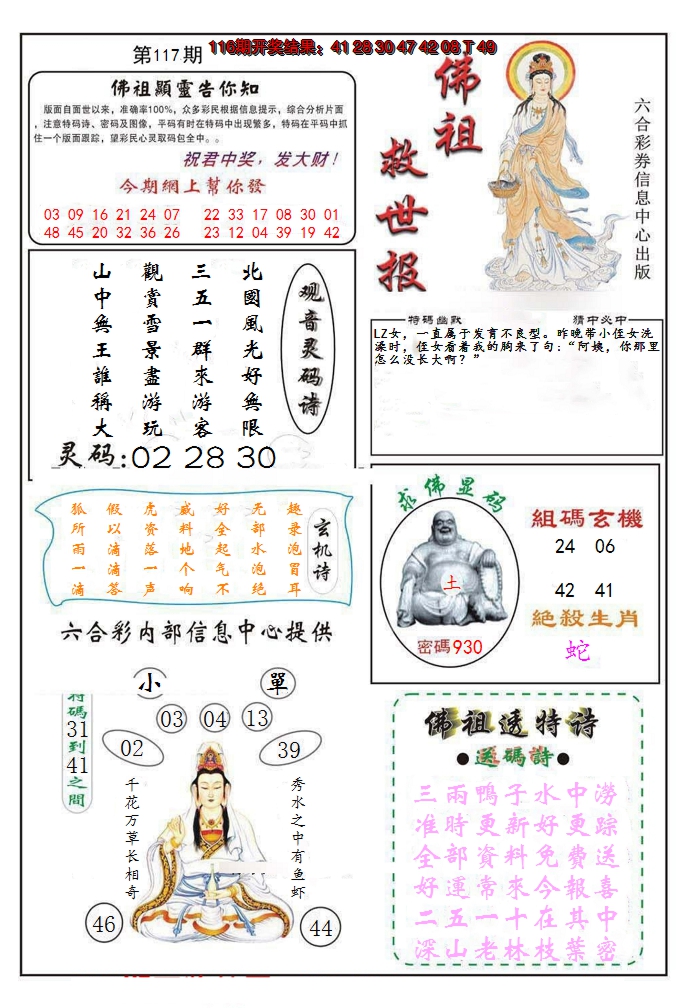 第117期
116期开奖结果：41 28 30 47 42 08 T 49
佛祖顯靈告你知
版面自面世以来，准确率100%，众多彩民根据信息提示，综合分析片面
，注意特码诗、密码及图像，平码有时在特码中出现繁多，特码在平码中抓
住一个版面跟踪，望彩民心灵取码包全中。。
祝君中奖，发大财！
今期網上幫你發
03 09 16 21 24 07 22 33 17 08 30 01
48 45 20 32 36 26 23 12 04 39 19 42
佛祖
救世报
六合彩券信息中心出版
观音灵码诗
北國風光好無限
三五一群來游客
觀賞雪景盡游玩
山中無王誰稱大
灵码:02 28 30
特碼幽默
猜中必中
LZ女，一直属于发育不良型。昨晚带小侄女洗
澡时，侄女看着我的胸来了句：“阿姨，你那里
怎么没长大啊？”
玄机诗
狐假虎威好无趣
所以资料全部录
雨滴落地起水泡
一滴一个气泡冒
滴答声响不绝耳
六合彩内部信息中心提供
求佛显码
土
密碼930
組碼玄機
24 06
42 41
絶殺生肖
蛇
小
單
特碼31到41之間
03
04
13
02
39
千花万草长相奇
秀水之中有鱼虾
46
44
佛祖透特诗
●送碼詩●
三兩鴨子水中澇
准時更新好更踪
全部資料免費送
好運常來今報喜
二五一十在其中
深山老林枝葉密